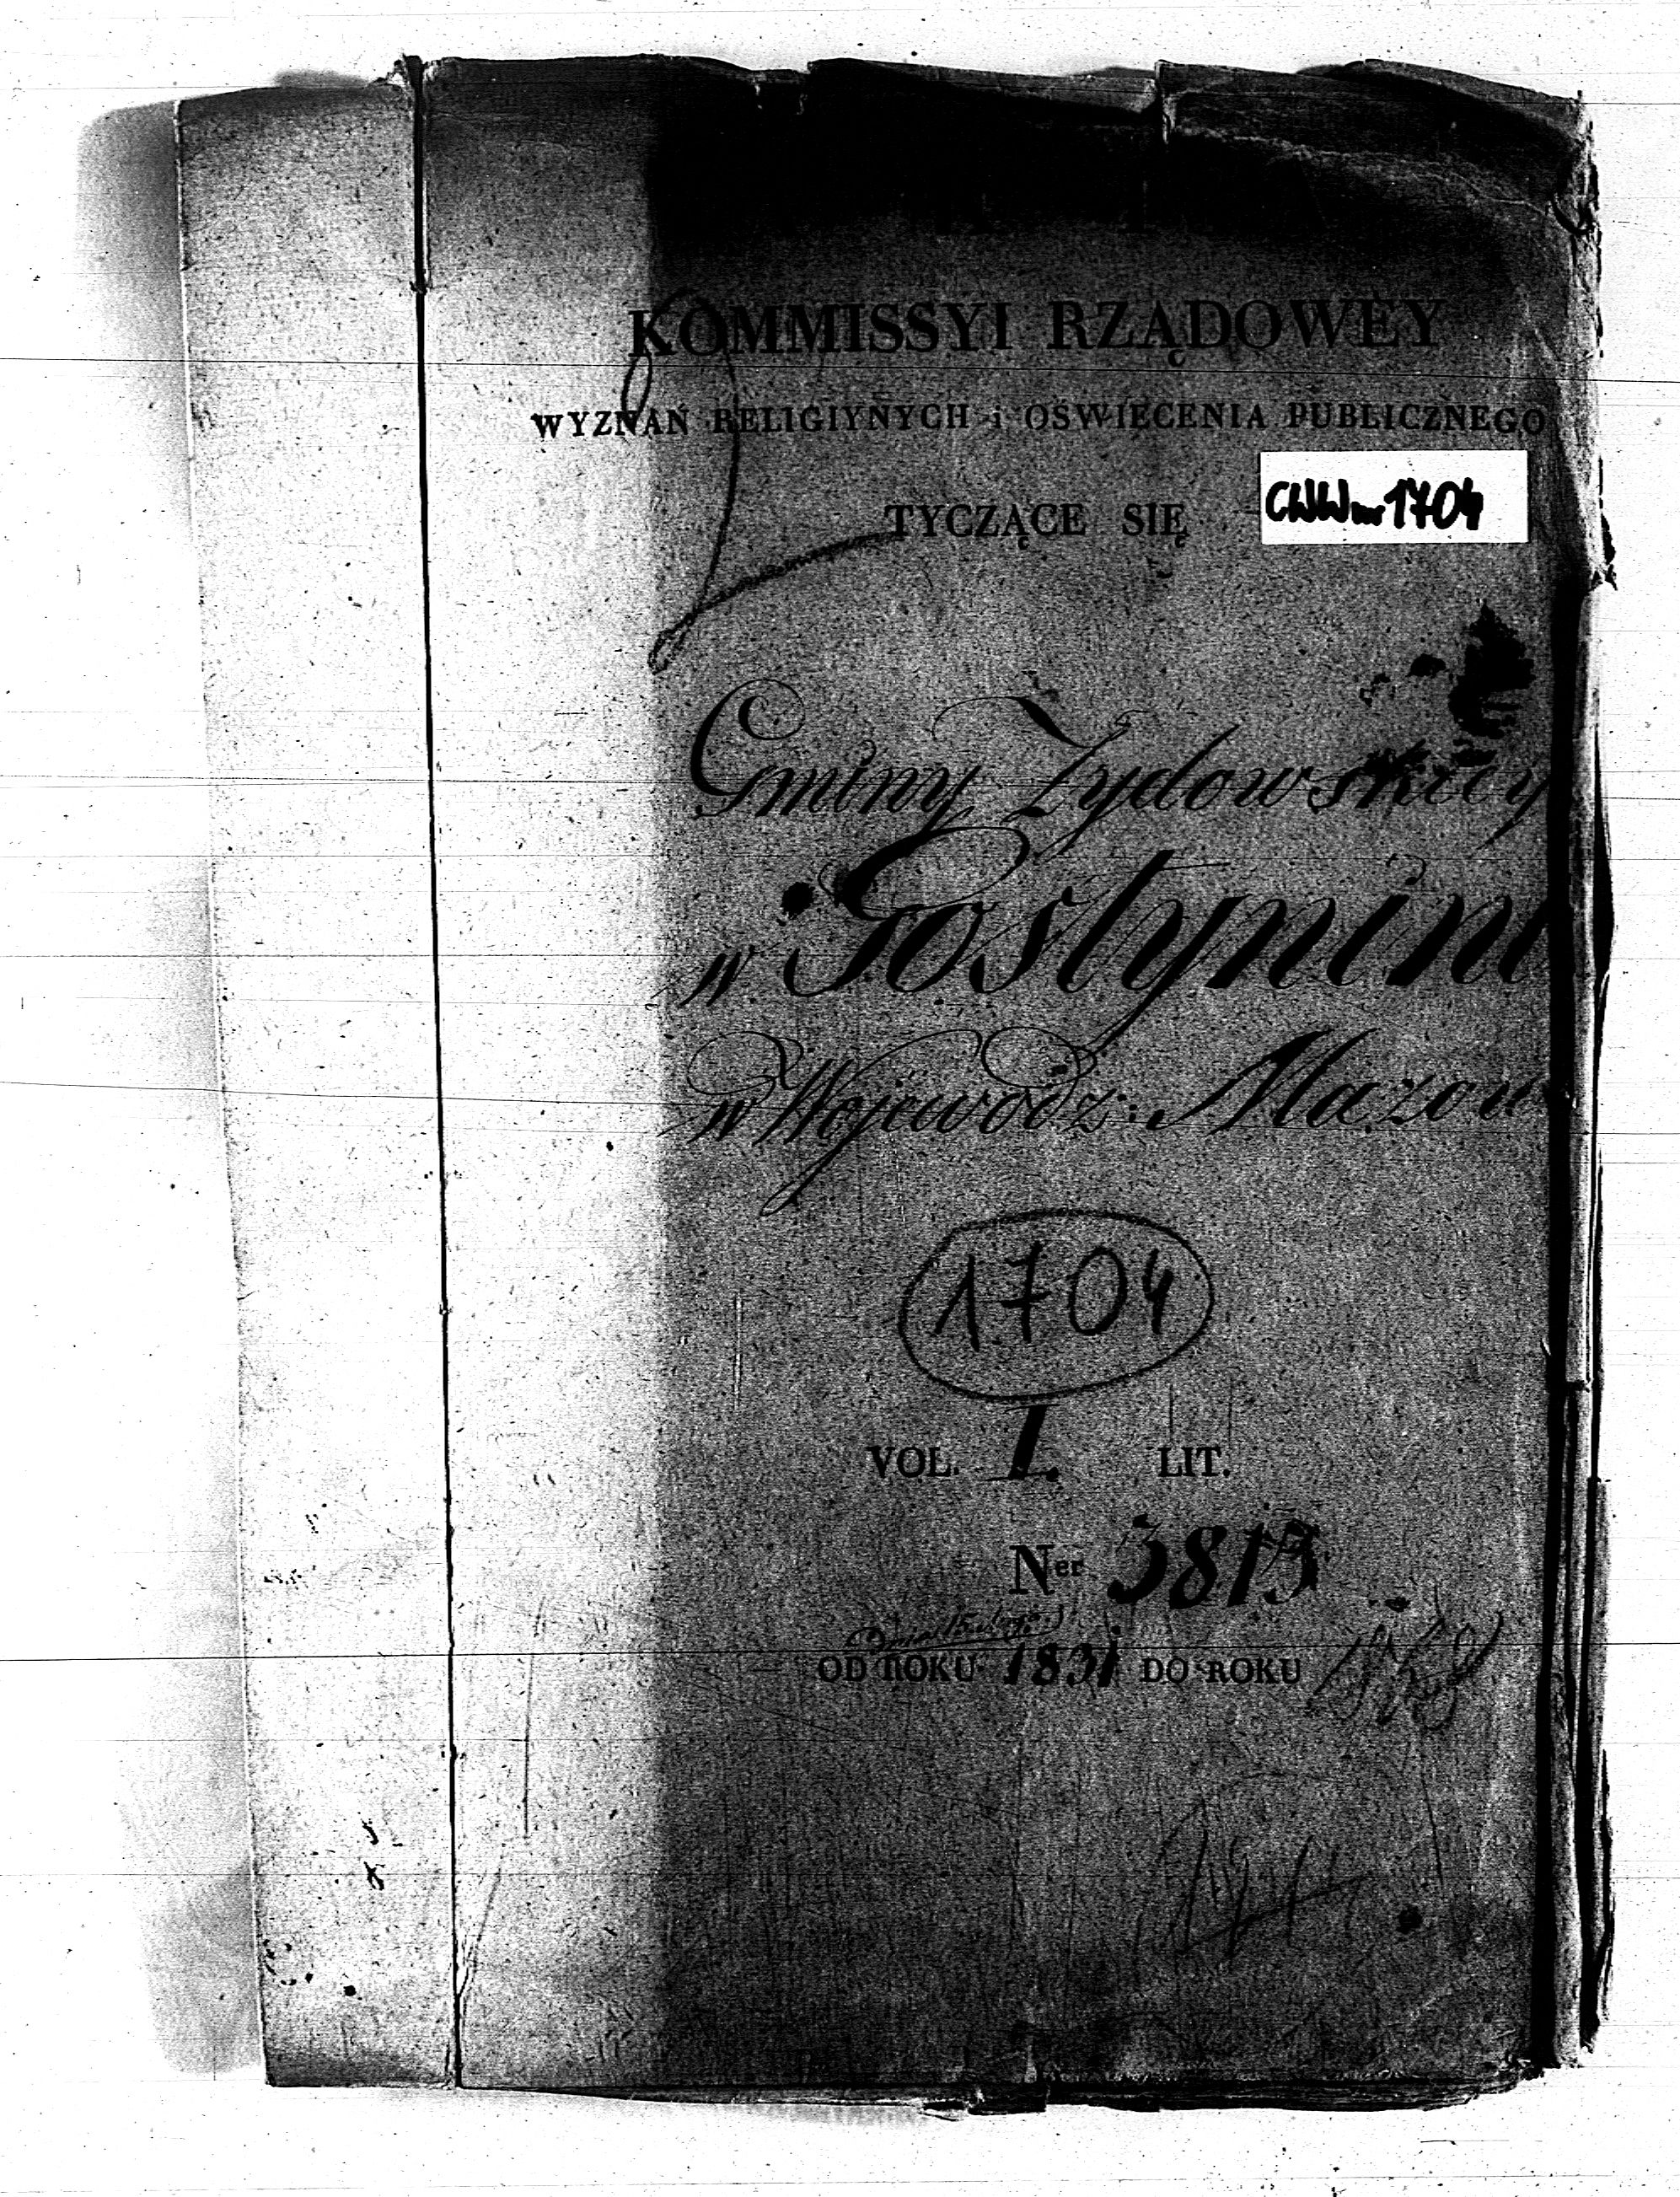 KOMMISSYI RZĄDOWEY
WYZNAŃ RELIGIYNYCH i OŚWIECENIA PUBLICZNEGO
TYCZĄCE SIĘ
CWW nr 1704
Gminy Żydowskiey
w Gostyninie
w Wojewodz: Mazow
1704
VOL. I. LIT.
Ner 3813
OD ROKU 1831 DO ROKU